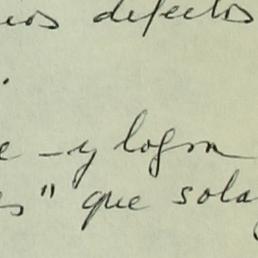 defectos
– y logra
" que sola